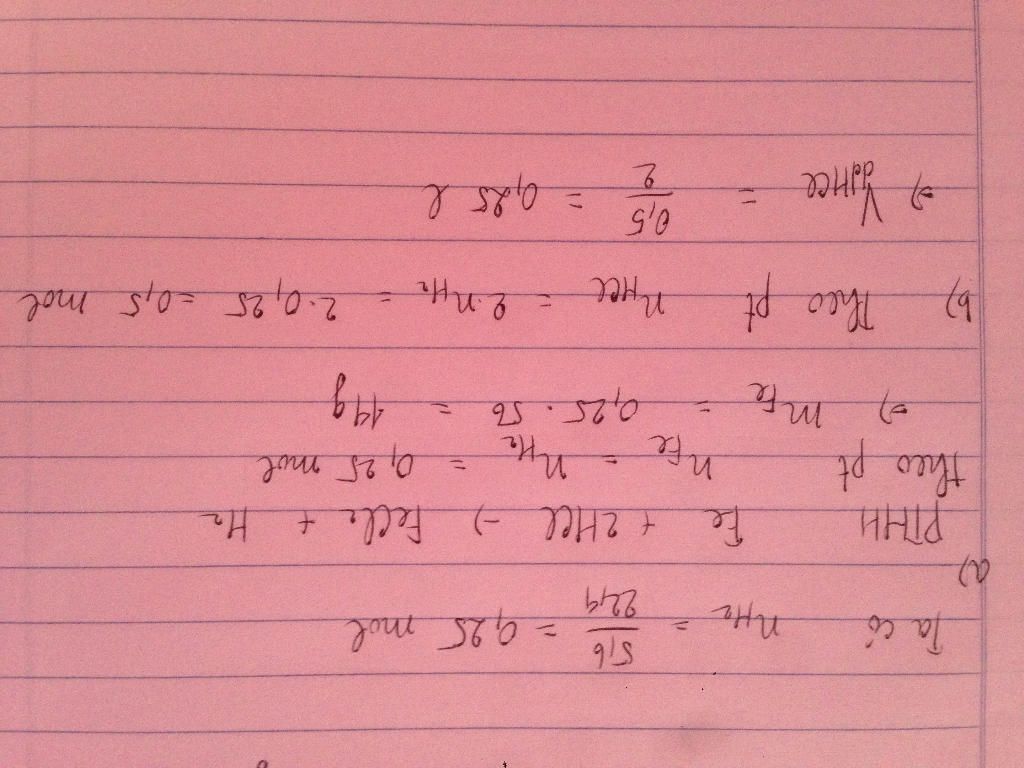 Ta có nH₂ = 5,6/22,4 = 0,25 mol
a)
PTHH Fe + 2HCl → FeCl₂ + H₂
theo pt nFe = nH₂ = 0,25 mol
=) mFe = 0,25 . 56 = 14g
b) Theo pt nHCl = 2.nH₂ = 2.0,25 = 0,5 mol
=) VddHCl = 0,5/2 = 0,25 l